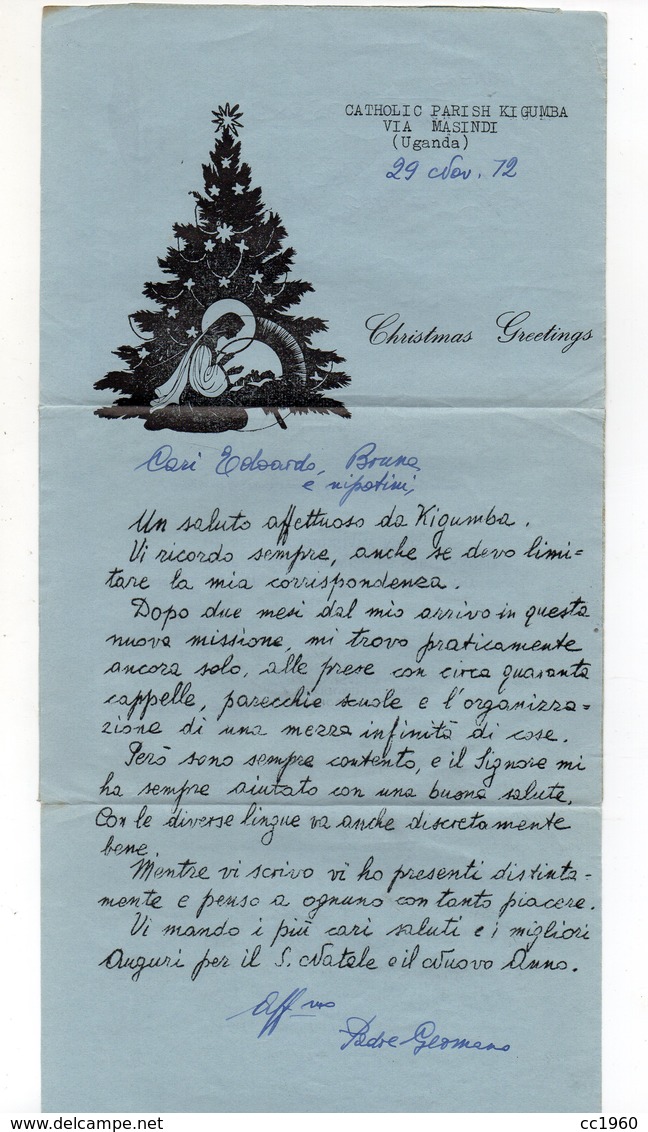 CATHOLIC PARISH KIGUMBA
VIA MASINDI
(Uganda)
29 Nov. 72
Christmas Greetings
Cari Edoardo, Bruna
e nipotini,
Un saluto affettuoso da Kigumba.
Vi ricordo sempre, anche se devo limi=
tare la mia corrispondenza.
Dopo due mesi dal mio arrivo in questa
nuova missione, mi trovo praticamente
ancora solo, alle prese con circa quaranta
cappelle, parecchie scuole e l'organizza=
zione di una mezza infinità di cose.
Però sono sempre contento, e il Signore mi
ha sempre aiutato con una buona salute.
Con le diverse lingue va anche discretamente
bene.
Mentre vi scrivo vi ho presenti distinta=
mente e penso a ognuno con tanto piacere.
Vi mando i più cari saluti e i migliori
Auguri per il S. Natale e il Nuovo Anno.
Aff mo
Padre Germano
delcampe.net
cc1960